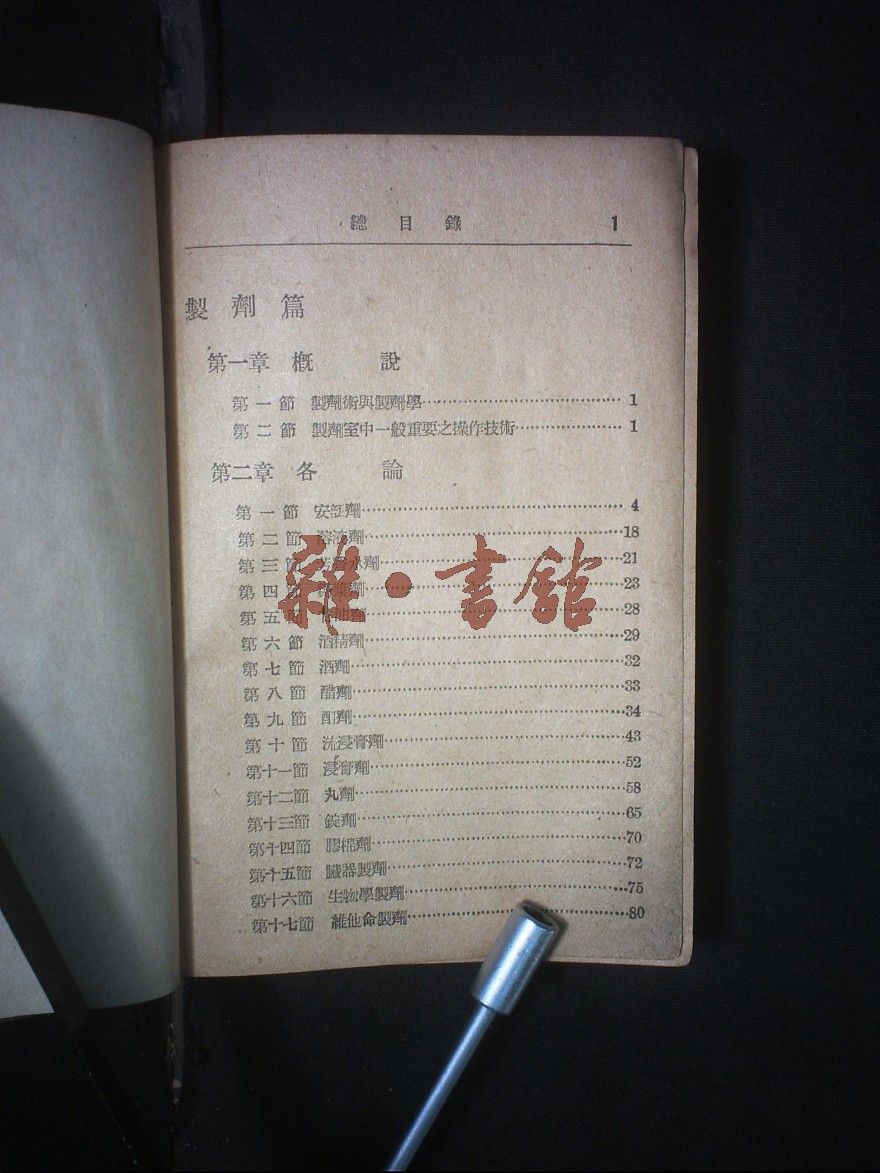 總目錄 1
製劑篇
第一章 概說
第一節 製劑術與製劑學 1
第二節 製劑室中一般重要之操作技術 1
第二章 各論
第一節 安瓿劑 4
第二節 溶液劑 18
第三節 芳香水劑 21
第四節 劑 23
第五節 劑 28
雜·書館
第六節 酒精劑 29
第七節 酒劑 32
第八節 醋劑 33
第九節 酊劑 34
第十節 流浸膏劑 43
第十一節 浸膏劑 52
第十二節 丸劑 58
第十三節 錠劑 65
第十四節 膠棉劑 70
第十五節 臟器製劑 72
第十六節 生物學製劑 75
第十七節 維他命製劑 80